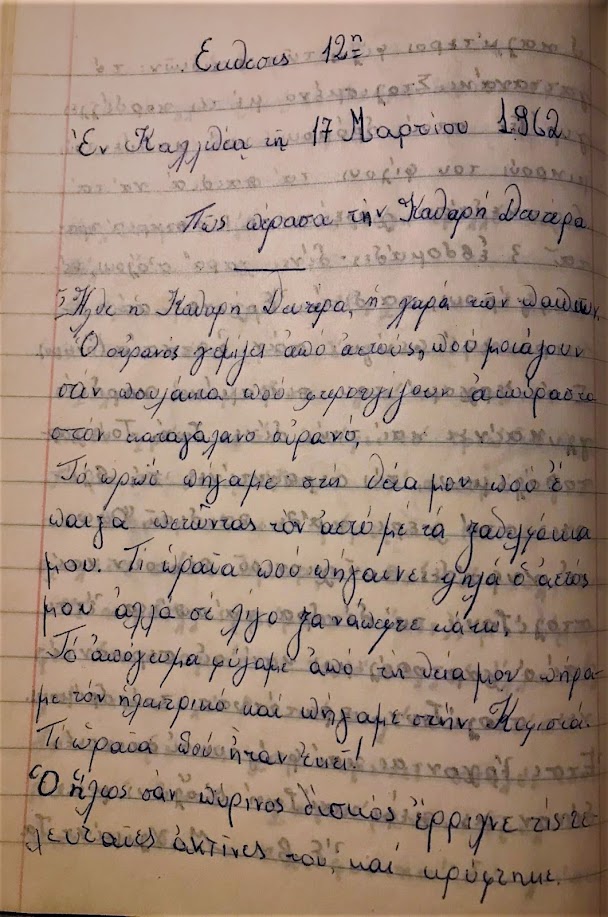 Εκθεσις 12η
Ἐν Καλλιθέᾳ τῇ 17 Μαρτίου 1962
Πῶς πέρασα τὴν Καθαρή Δευτέρα
Ἦλθε ἡ Καθαρή Δευτέρα, ἡ χαρά τῶν παιδιῶν.
Ὁ οὐρανός γέμισε ἀπό ἀετούς, πού μοιάζουν
σάν πουλάκια πού φτερουγίζουν
στόν καταγάλανο οὐρανό,
Τό πρωί πήγαμε στή θεία μου πού ἔ
παιξα πετῶντας τόν ἀετό μέ τά ξαδελφάκια
μου. Τι ὡραῖα πού πήγαινε ψηλά ὁ ἀετός
μου ἀλλά σέ λίγο ξανάπεφτε κάτω.
Τό ἀπόγευμα φύγαμε ἀπό τή θεία μου πήρα-
με τόν ἠλεκτρικό καί πήγαμε στήν Κηφισιά.
Τι ὡραῖα πού ἦταν ἐκεῖ!
Ὁ ἥλιος σάν πύρινος δίσκος ἔρριχνε τίς τε
λευταῖες ἀκτίνες του, καί κρύφτηκε.